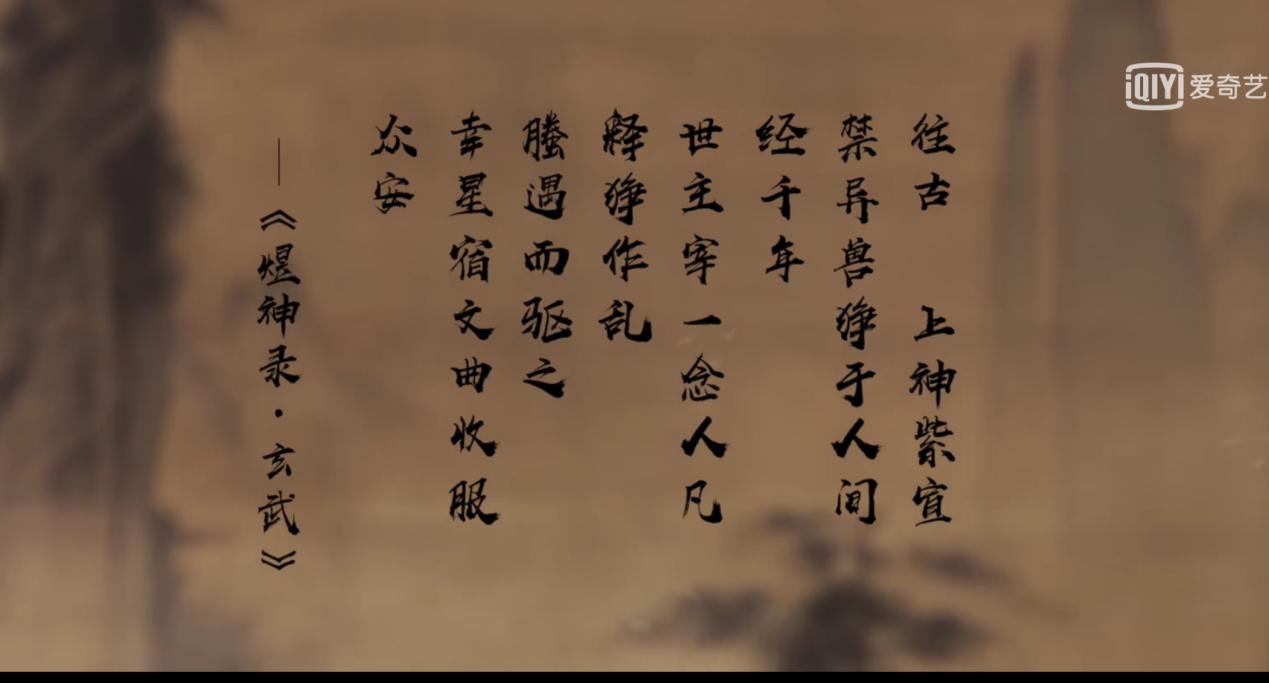 往古 上神紫宣
禁异兽狰于人间
经千年
世主宰一念人凡
释狰作乱
螣遇而驱之
幸星宿文曲收服
众安
——《煜神录·玄武》
iQIYI 爱奇艺